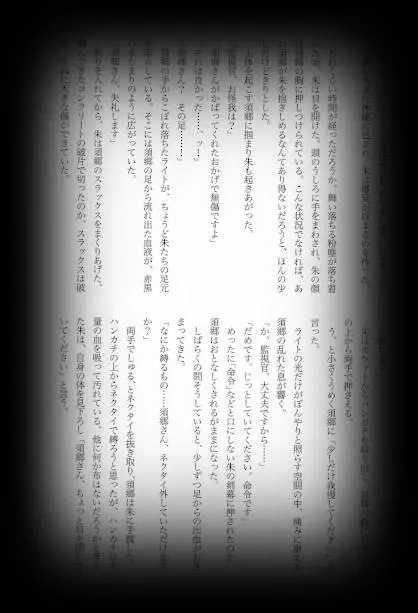 くらい時間が経っただろうか。舞い落ちる粉塵が落ち着
いた頃、朱は目を開けた。頭のうしろに手をまわされ、朱の顔
須郷の胸に押しつけられている。こんな状況でなければ、あ
須郷が朱を抱きしめるなんてあり得ないだろうと、ほんの少
だけどきりとした。
監視官、お怪我は？」
体を起こす須郷に掴まり朱も起きあがった。
須郷さんがかばってくれたおかげで無傷ですよ」
それは良かった……、ッ！」
須郷さん？　その足……！」
須郷の手からこぼれ落ちたライトが、ちょうど朱たちの足元
していた。そこには須郷の足から流れ出た血液が、赤黒
いたまりのように広がっていた。
須郷さん、失礼します」
断りを入れてから、朱は須郷のスラックスをまくりあげた。
コンクリートの破片で切ったのか、スラックスは破
大きな傷ができていた。
の上から両手で押さえる。
う、と小さくうめく須郷に「少しだけ我慢してください」
言った。
ライトの光だけがぼんやりと照らす空間の中、痛みに耐える
須郷の乱れた息が響く。
「か、監視官。大丈夫ですから……」
「だめです。じっとしていてください。命令です」
めったに「命令」などと口にしない朱の剣幕に押されたのか
須郷はおとなしくされるがままになった。
しばらくの間そうしていると、少しずつ足からの出血がお
まってきた。
「なにか縛るもの……須郷さん、ネクタイ外していただけ
か？」
両手でしゅる、とネクタイを抜き取り、須郷は朱に手渡し
ハンカチの上からネクタイで縛ろうと思ったが、ハンカチは
量の血を吸って汚れている。他に何か布はないだろうかと考
た朱は、自身の体を見下ろし「須郷さん、ちょっと目を閉じて
いてください」と言う。